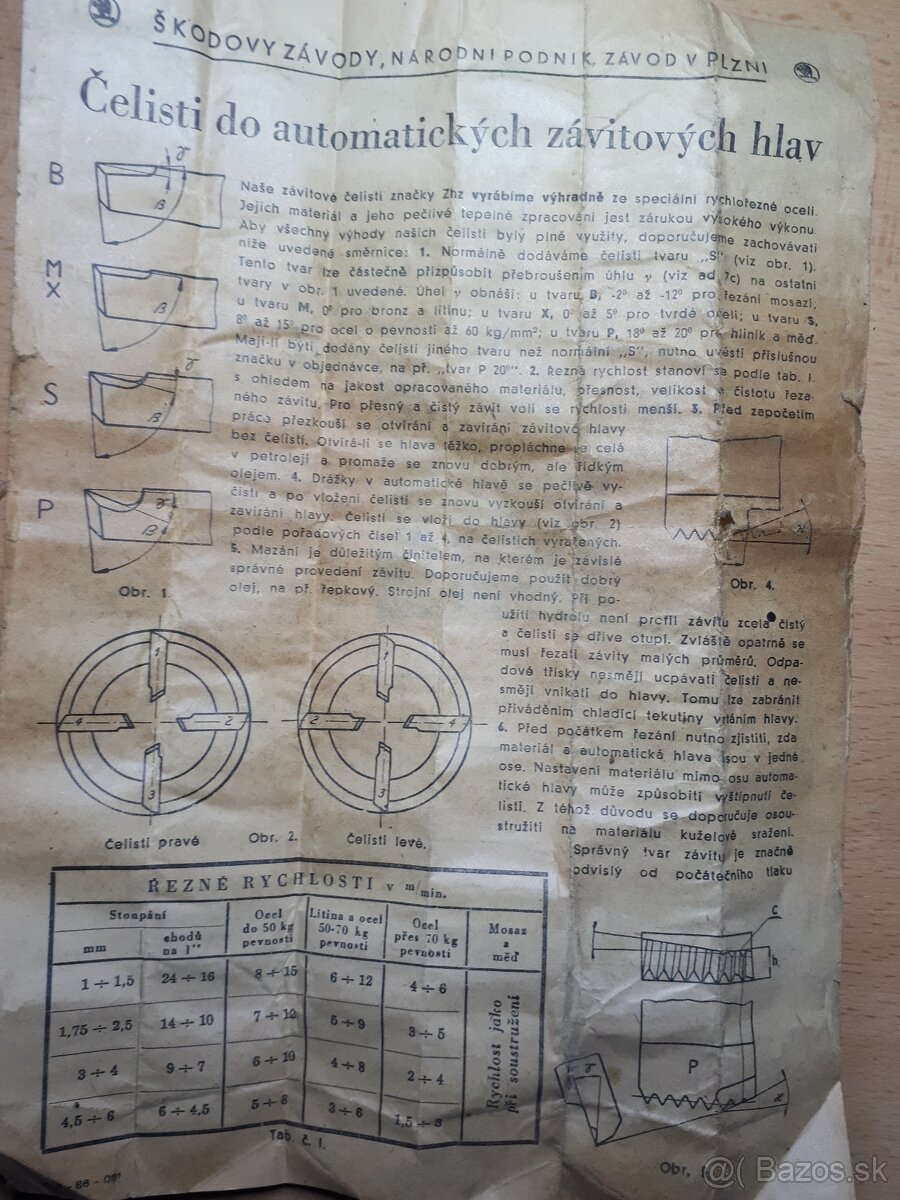 ŠKODOVY ZÁVODY, NÁRODNÍ PODNIK, ZÁVOD V PLZNI
Čelisti do automatických závitových hlav
B
γ
β
M
X
β
S
γ
β
P
γ
β
Obr. 1.
Naše závitové čelisti značky Zhz vyrábíme výhradně ze speciální rychlořezné oceli.
Jejich materiál a jeho pečlivé tepelné zpracování jest zárukou vysokého výkonu
Aby všechny výhody našich čelistí byly plně využity, doporučujeme zachovávati
níže uvedené směrnice: 1. Normálně dodáváme čelisti tvaru „S" (viz obr. 1).
Tento tvar lze částečně přizpůsobit přebroušením úhlu γ (viz ad 7c) na ostatní
tvary v obr. 1 uvedené. Úhel γ obnáší: u tvaru B, -2° až -12° pro řezání mosazi;
u tvaru M, 0° pro bronz a litinu; u tvaru X, 0° až 5° pro tvrdé oceli; u tvaru S,
8° až 15° pro ocel o pevnosti až 60 kg/mm²; u tvaru P, 18° až 20° pro hliník a měď.
Mají-li býti dodány čelisti jiného tvaru než normální „S", nutno uvésti příslušnou
značku v objednávce, na př. „tvar P 20°". 2. Řezná rychlost stanoví se podle tab. I.
s ohledem na jakost opracovaného materiálu, přesnost, velikost a čistotu řeza-
ného závitu. Pro přesný a čistý závit volí se rychlosti menší. 3. Před započetím
práce přezkouší se otvírání a zavírání závitové hlavy
bez čelistí. Otvírá-li se hlava těžko, propláchne se celá
v petroleji a promaže se znovu dobrým, ale řídkým
olejem. 4. Drážky v automatické hlavě se pečlivě vy-
čistí a po vložení čelistí se znovu vyzkouší otvírání a
zavírání hlavy. Čelisti se vloží do hlavy (viz obr. 2)
podle pořadových čísel 1 až 4, na čelistích vyražených.
5. Mazání je důležitým činitelem, na kterém je závislé
správné provedení závitu. Doporučujeme použít dobrý
olej, na př. řepkový. Strojní olej není vhodný. Při po-
užití hydrolu není profil závitu zcela čistý
a čelisti se dříve otupí. Zvláště opatrně se
musí řezati závity malých průměrů. Odpa-
dové třísky nesmějí ucpávati čelisti a ne-
smějí vnikati do hlavy. Tomu lze zabrániti
přiváděním chladící tekutiny vrtáním hlavy.
6. Před počátkem řezání nutno zjistiti, zda
materiál a automatická hlava jsou v jedné
ose. Nastavení materiálu mimo osu automa-
tické hlavy může způsobiti vyštípnutí če-
listi. Z téhož důvodu se doporučuje osou-
stružiti na materiálu kuželové sražení.
Správný tvar závitu je značně
odvislý od počátečního tlaku
Obr. 4.
1
4 2
3
1
2 4
3
Čelisti pravé Obr. 2. Čelisti levé.
ŘEZNÉ RYCHLOSTI v m/min.
Stoupání
mm
chodů na 1"
Ocel do 50 kg pevnosti
Litina a ocel 50-70 kg pevnosti
Ocel přes 70 kg pevnosti
Mosaz a měď
1 ÷ 1,5 24 ÷ 16 8 ÷ 15 6 ÷ 12 4 ÷ 6
1,75 ÷ 2,5 14 ÷ 10 7 ÷ 12 5 ÷ 9 3 ÷ 5
3 ÷ 4 9 ÷ 7 6 ÷ 10 4 ÷ 8 2 ÷ 4
4,5 ÷ 6 6 ÷ 4,5 5 ÷ 8 3 ÷ 6 1,5 ÷ 3
Rychlost jako
při soustružení
Tab. č. I.
C
h
P
γ
Obr.
@( Bazos.sk